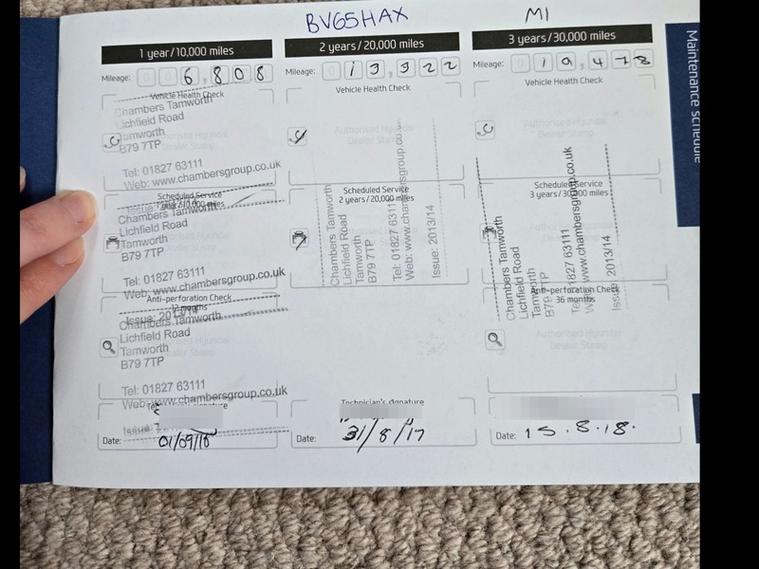 BV65HAX
M1
1 year/10,000 miles
2 years/20,000 miles
3 years/30,000 miles
Mileage: 006,808
Mileage: 013,922
Mileage: 019,478
Maintenance schedule
Vehicle Health Check
Chambers Tamworth
Lichfield Road
Tamworth
B79 7TP
Tel: 01827 63111
Web: www.chambersgroup.co.uk
Vehicle Health Check
Authorised Hyundai
Dealer Stamp
Vehicle Health Check
Authorised Hyundai
Dealer Stamp
Scheduled Service
1 year/10,000 miles
Chambers Tamworth
Lichfield Road
Tamworth
B79 7TP
Tel: 01827 63111
Web: www.chambersgroup.co.uk
Scheduled Service
2 years/20,000 miles
Chambers Tamworth
Lichfield Road
Tamworth
B79 7TP
Tel: 01827 63111
Web: www.chambersgroup.co.uk
Issue: 2013/14
Scheduled Service
3 years/30,000 miles
Chambers Tamworth
Lichfield Road
Tamworth
B79 7TP
Tel: 01827 63111
Web: www.chambersgroup.co.uk
Issue: 2013/14
Anti-perforation Check
12 months
Chambers Tamworth
Lichfield Road
Tamworth
B79 7TP
Tel: 01827 63111
Web: www.chambersgroup.co.uk
Issue:
Anti-perforation Check
36 months
Authorised Hyundai
Dealer Stamp
Technician's signature
Date: 01/09/16
Date: 31/8/17
Date: 15.8.18.